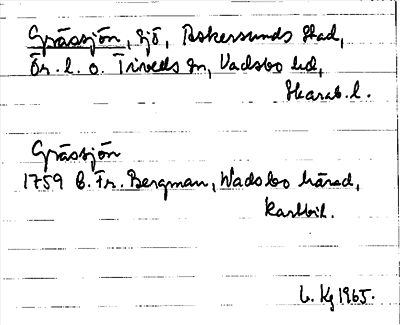 Gråssjön, sjö, Askersunds stad,
Ör. l. o. Tiveds sn, Vadsbo hd,
Skarab. l.
Gråssjön
1759 B. Fr. Bergman, Wadsbo härad,
kartbih.
L. Kg 1965.